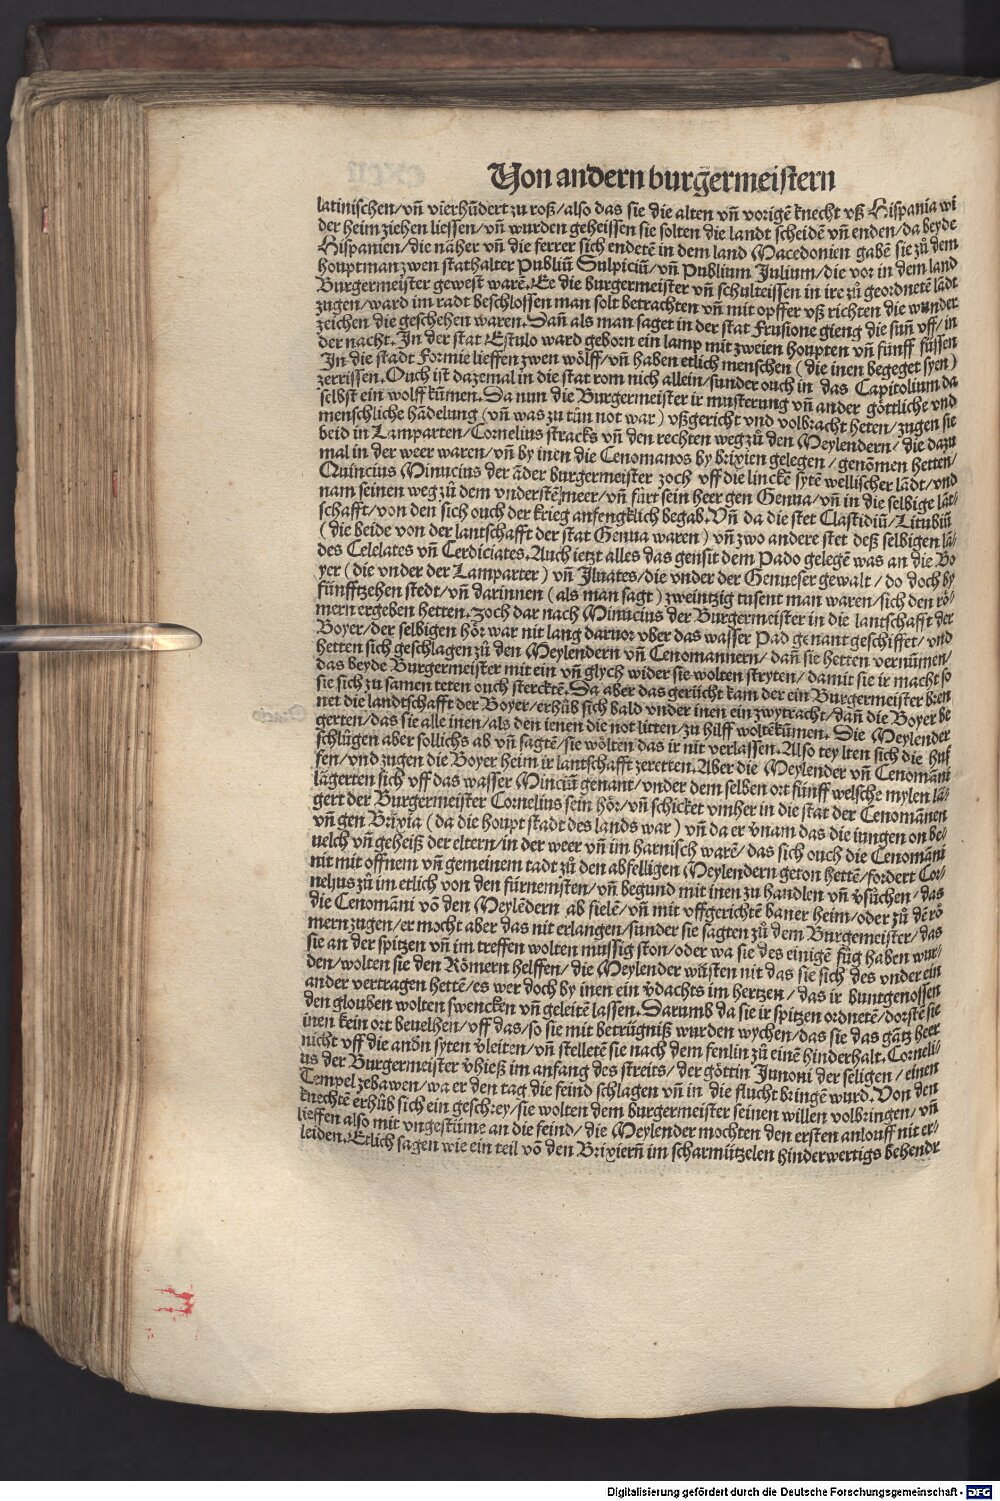 Von andern burgermeistern
latinischen/vñ vierhũdert zu roß/also das sie die alten vñ vorigẽ knecht vß Hispania wi
der heim ziehen liessen/vñ wurden geheissen sie solten die landt scheidẽ vñ enden/da beyde
Hispanien/die näher vñ die ferrer sich endetẽ in dem land Macedonien gabẽ sie zů dem
houptman zwen stathalter Publiũ Sulpiciũ/vñ Publium Julium/die vor in dem land
Burgermeister gewest warẽ. Ee die burgermeister vñ schulteissen in ire zů geordnetẽ lãdt
zugen/ward im radt beschlossen man solt betrachten vñ mit opffer vß richten die wunder
zeichen die geschehen waren. Dañ als man saget in der stat Frusione gieng die suñ vff/in
der nacht. In der stat Estulo ward geborn ein lamp mit zweien houpten vñ fünff füssen
In die stadt Formie lieffen zwen wölff/vñ haben etlich menschen (die inen begeget syen)
zerrissen. Ouch ist dazemal in die stat rom nich allein/sunder ouch in das Capitolium da
selbst ein wolff kũmen. Da nun die Burgermeister ir musterung vñ ander göttliche vnd
menschliche hãdelung (vñ was zu tůn not war) vßgericht vnd volbracht heten/zugen sie
beid in Lamparten/Cornelius stracks vñ den rechten weg zů den Meylendern/die dazu
mal in der weer waren/vñ by inen die Cenomanos by brixien gelegen/genõmen hetten/
Quincius Minucius der ãder burgermeister zoch vff die linckẽ sytẽ wellischer lãdt/vnd
nam seinen weg zů dem vnderstẽ meer/vñ fůrt sein heer gen Genua/vñ in die selbige lãt-
schafft/von den sich ouch der krieg anfengklich begab. Vñ da die stet Clastidiũ/Litubiũ
(die beide von der lantschafft der stat Genua waren) vñ zwo andere stet deß selbigen lã-
des Celelates vñ Cerdiciates. Auch ietzt alles das gensit dem Pado gelegẽ was an die Bo
yer (die vnder der Lamparter) vñ Jluates/die vnder der Genueser gewalt/do doch by
fünfftzehen stedt/vñ darinnen (als man sagt) zweintzig tusent man waren/sich den rö-
mern ergeben hetten. Zoch dar nach Minucius der Burgermeister in die lantschafft der
Boyer/der selbigen hör war nit lang daruor vber das wasser Pad genant geschiffet/vnd
hetten sich geschlagen zů den Meylendern vñ Cenomannern/dañ sie hetten vernũmen/
das beyde Burgermeister mit ein vñ glych wider sie wolten stryten/damit sie ir macht so
sie sich zu samen teten ouch sterckẽ. Da aber das gerücht kam der ein Burgermeister bren
net die landtschafft der Boyer/erhůb sich bald vnder inen ein zwytracht/dañ die Boyer be
gerten/das sie alle inen/als den ienen die not litten/zu hilff woltẽ kũmen. Die Meylender
schlůgen aber sollichs ab vñ sagtẽ/sie wölten das ir nit verlassen. Also teylten sich die huf
fen/vnd zugen die Boyer heim ir lantschafft zeretten. Aber die Meylender vñ Cenomãni
lägerten sich vff das wasser Minciũ genant/vnder dem selben ort fünff welsche mylen lä-
gert der Burgermeister Cornelius sein hör/vñ schicket vmher in die stat der Cenomãnen
vñ gen Brixia (da die houpt stadt des lands war) vñ da er v̄nam das die iungen on be-
uelch vñ geheiß der eltern/in der weer vñ im harnisch warẽ/das sich ouch die Cenomãni
nit mit offnem vñ gemeinem radt zů den abfelligen Meylendern geton hettẽ/fordert Cor-
nelius zů im etlich von den fürnemsten/vñ begund mit inen zu handlen vñ v̄sůchen/das
die Cenomãni võ den Meylẽdern ab fielẽ/vñ mit vffgerichtẽ baner heim/oder zů dẽ rö
mern zugen/er mocht aber das nit erlangen/sunder sie sagten zů dem Burgemeister/das
sie an der spitzen vñ im treffen wolten mussig ston/oder wa sie des einigẽ fůg haben wur-
den/wolten sie den Römern helffen/die Meylender wüsten nit das sie sich des vnder ein
ander vertragen hettẽ/es wer doch by inen ein v̄dachts im hertzen/das ir buntgenossen
den glouben wolten swencken vñ geleitẽ lassen. Darumb da sie ir spitzen ordnetẽ/dorstẽ sie
inen kein ort beuelhen/vff das/so sie mit betrügniß wurden wychen/das sie das gãtz heer
nicht vff die andñ syten v̄leiten/vñ stelletẽ sie nach dem fenlin zů einẽ hinderhalt. Corneli-
us der Burgermeister v̄hieß im anfang des streits/der göttin Junoni der seligen/einen
Tempel zebawen/wa er den tag die feind schlagen vñ in die flucht bringẽ wurd. Von den
knechtẽ erhůb sich ein geschrey/sie wolten dem burgermeister seinen willen volbringen/vñ
lieffen also mit vngestüme an die feind/die Meylender mochten den ersten anlouff nit er-
leiden. Etlich sagen wie ein teil võ den Brixierñ im scharmützelen hinderwertigs behendr
Digitalisierung gefördert durch die Deutsche Forschungsgemeinschaft - DFG